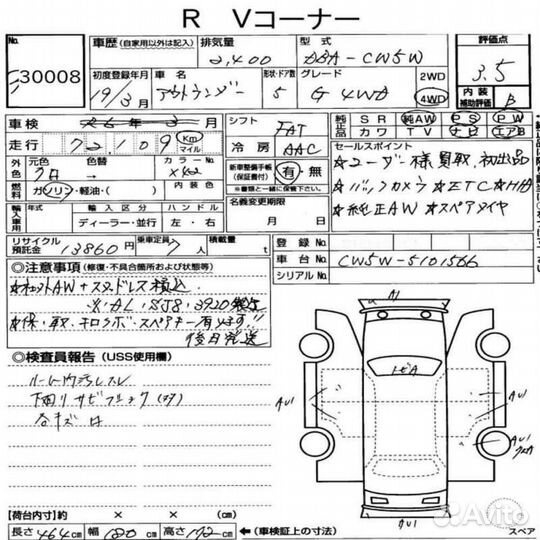 R Vコーナー
No.
30008
車歴 (自家用以外は記入)
排気量
2,400
型式
DBA-CW5W
評価点
3.5
初度登録年月
19/3月
車名
アウトランダー
形状・ドア数
5
グレード
G 4WD
2WD
4WD
内装
補助評価
B
車検
年 月
走行
72,109
Km
マイル
シフト
FAT
冷房
AAC
純正品
SR 純AW PS PW
カワ TV ナビ エアB
外色
元色
色替
カラーNo.
X42
内装色
燃料
ガソリン・軽油・( )
新車整備手帳
(保証書付)
有・無
※書類と一緒に保管して下さい。
名義変更期限
月 日
セールスポイント
★ユーザー様買取、初出品
★バックカメラ ★ETC ★HID
★純正AW ★スペアタイヤ
輸入車用
年式
輸入区分
ハンドル
ディーラー・並行
左・右
リサイクル預託金
13860円
乗車定員
7人
積載量
t
登録No.
車台No.
CW5W-5101566
シリアルNo.
◎注意事項 (修復・不具合箇所および状態等)
後日発送
◎検査員報告 (USS使用欄)
ルーム内汚レスレ
下廻りサビ
A1
ドビA
AU1
AU1
AU1
AU1
【荷台内寸】約 × × (cm)
長さ 464cm 幅 180cm 高さ 172cm ←(車検証上の寸法)
スペア
Avito